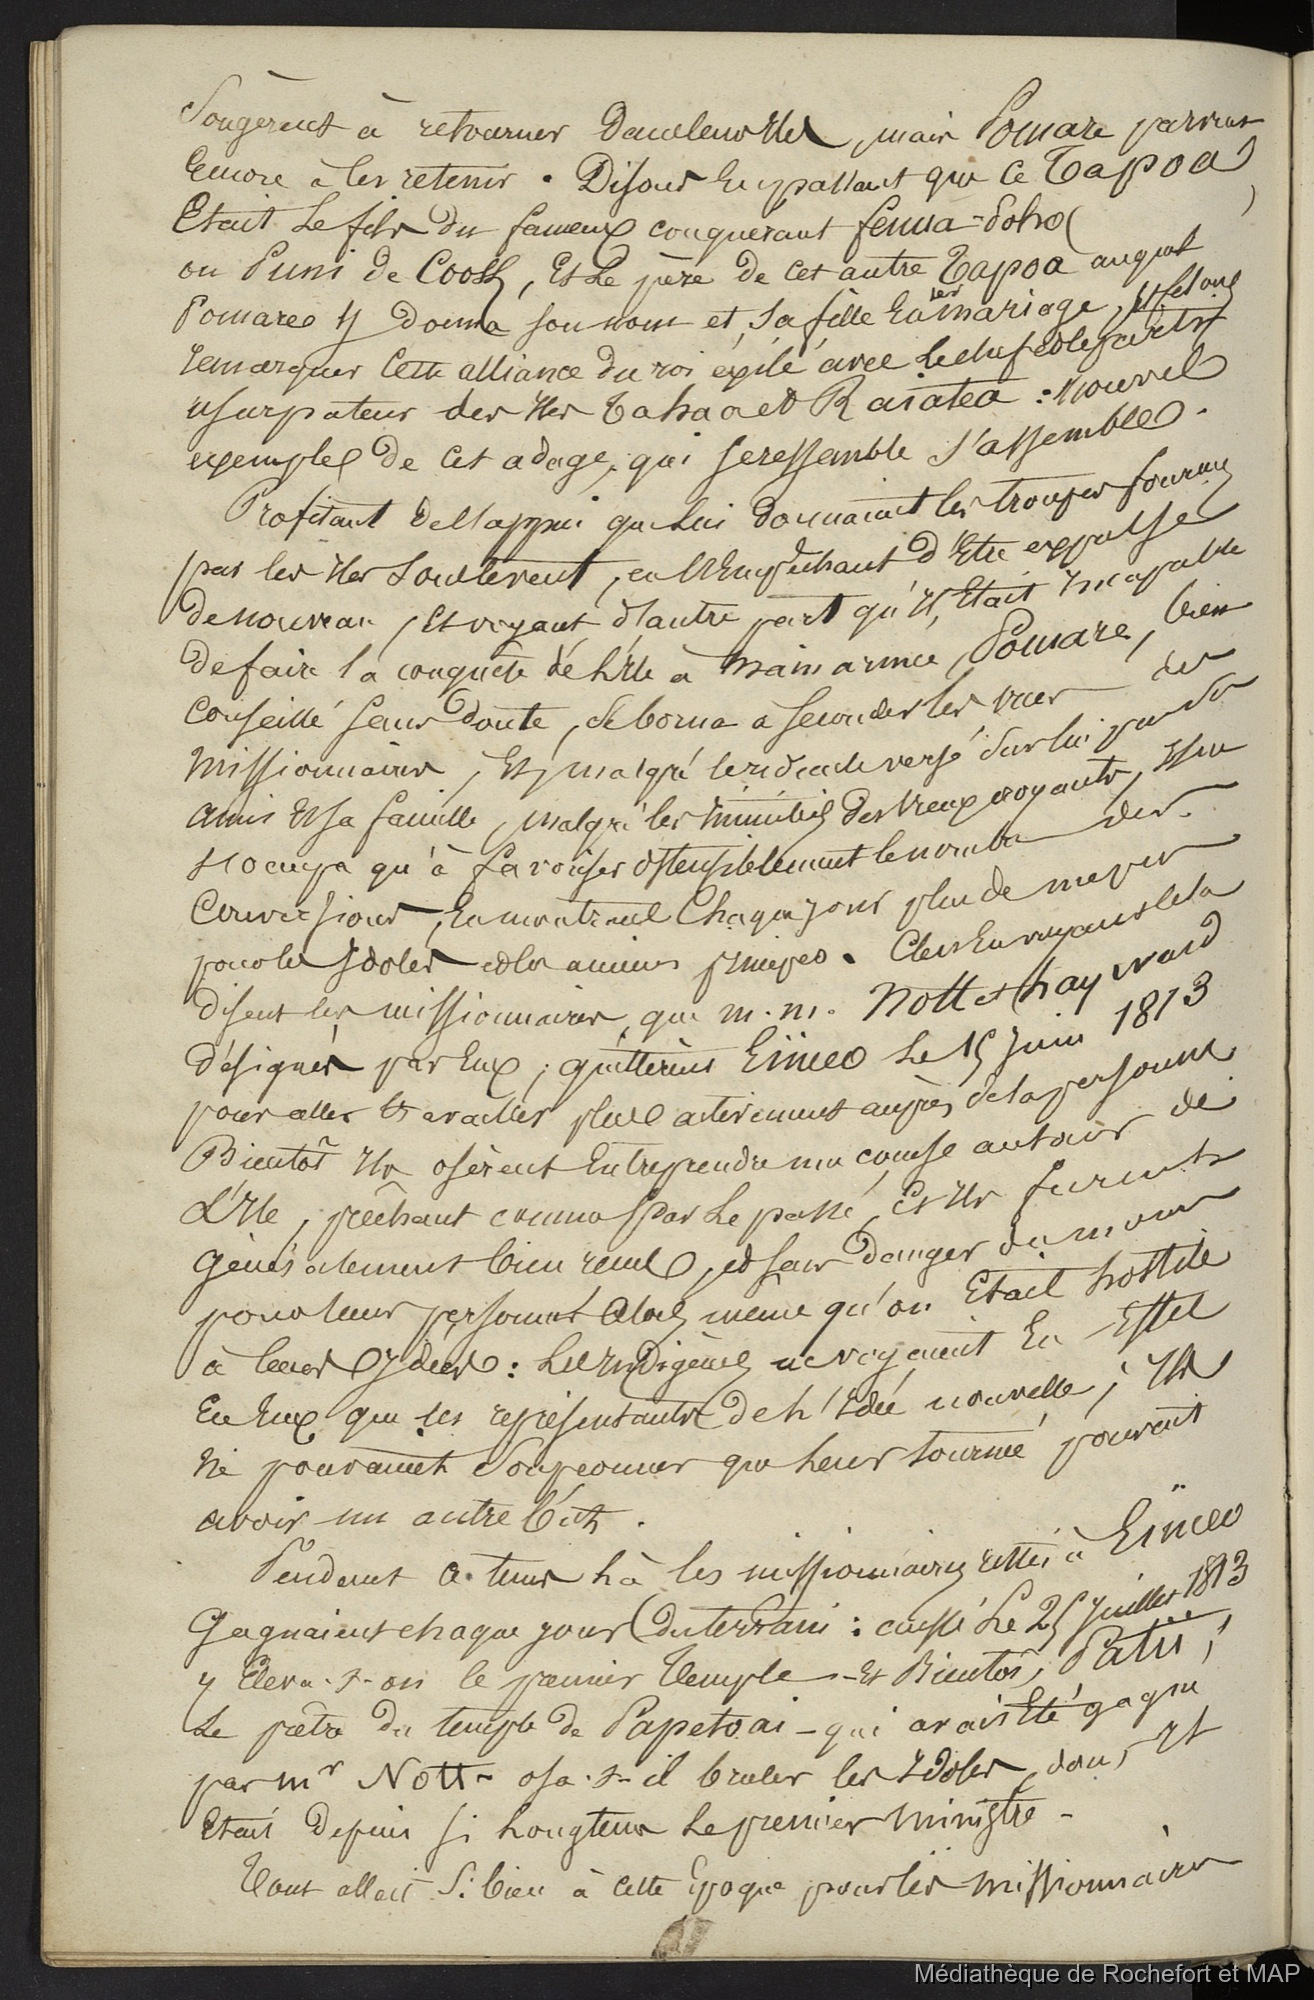 Songèrent à retourner dans leurs Iles, mais Pomare parvint
Encore à les retenir. Disons En passant que ce Tapoa
Etait Le fils du fameux conquérant fenua-
ou Puni de Cook, Et Le père de cet autre Tapoa auquel
Pomare donna son nom et sa fille En mariage,
remarquer Cette alliance du roi éxilé avec Le chef
usurpateur des Iles Tahaa et Raiatea : Nouvel
exemple de cet adage, qui se ressemble s'assemble.
Profitant de l'appui que lui donnaient les troupes fournies
par les Iles sous le vent, en L'Empêchant d'Etre expulsé
de nouveau, Et voyant d'autre part qu'Il Etait Incapable
de faire la conquête de L'Ile à main armée, Pomare, bien
Conseillé sans doute, se borna à seconder les vues des
Missionnaires, Et, malgré le ridicule versé sur lui par ses
Amis Et sa famille, malgré les Inimitiés des vieux croyants, Il ne
s'occupa qu'à favoriser ostensiblement le nombre des
Conversions, En montrant Chaque jour plus de mépris
pour les Idoles et les anciens principes. C'est En voyant cela
disent les missionnaires, que M. M. Nott et Hayward
désignés par Eux, quittèrent Eïmeo Le 15 Juin 1813
pour aller travailler plus activement auprès de la personne
Bientôt Ils osèrent Entreprendre une course autour de
L'Ile, prêchant comme par Le passé, Et Ils furent
généralement bien reçus, et sans danger du moins
pour leurs personnes alors même qu'on Etait hostile
à leurs Idées : Les Indigènes ne voyaient En Effet
En Eux que les représentants de L'Idée nouvelle ; Ils
Ne pouvaient soupçonner que Leur tournée pouvait
avoir un autre but.
Pendant ce temps Là les missionnaires restés à Eïmeo
Gagnaient chaque jour du terrain : aussi Le 25 Juillet 1813
y Eleva-t-on le premier Temple - Et Bientôt, Patii,
Le prêtre du temple de Papetoai - qui avait Eté gagné
par Mr Nott - osa-t-il bruler les Idoles, dont Il
Etait depuis si Longtems Le premier Ministre -
Tout allait si bien à cette Epoque pour les Missionnaires
Médiathèque de Rochefort et MAP